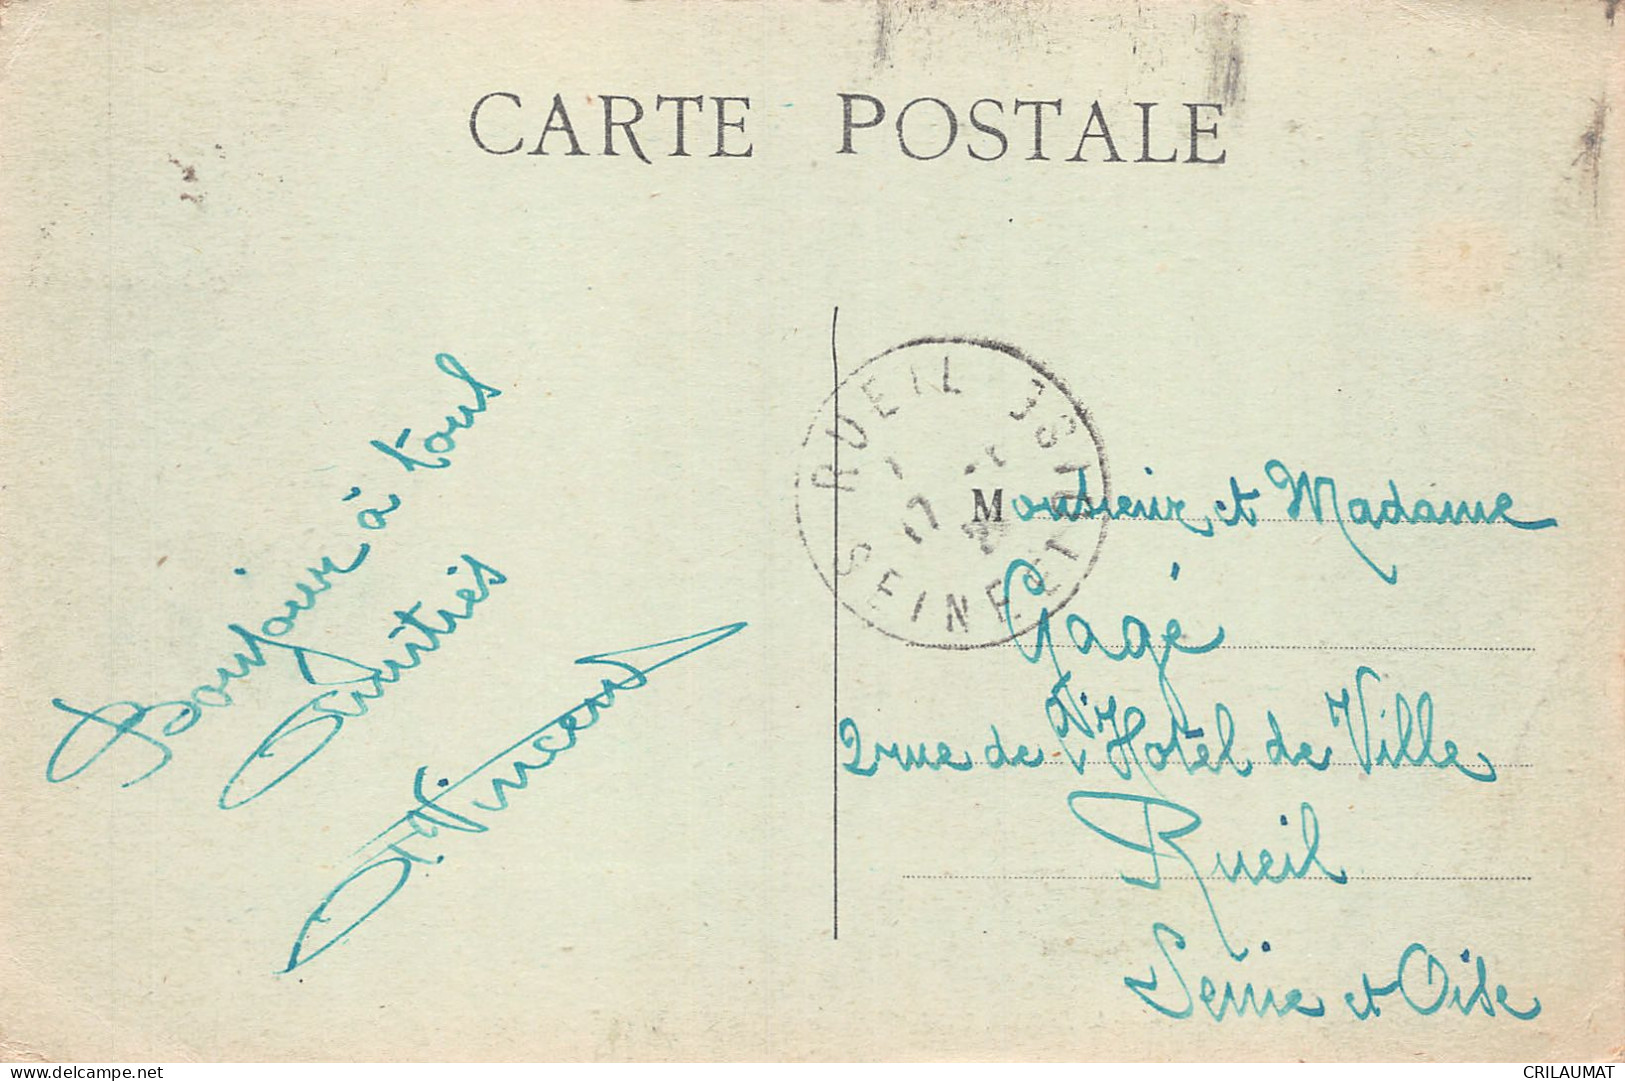 CARTE POSTALE
Bonjour à tous
Amitiés
Vincent
RUEIL
SEINE ET OISE
17
Monsieur et Madame
Gagé
2 rue de l'Hotel de Ville
Rueil
Seine et Oise
delcampe.net
CRILAUMAT